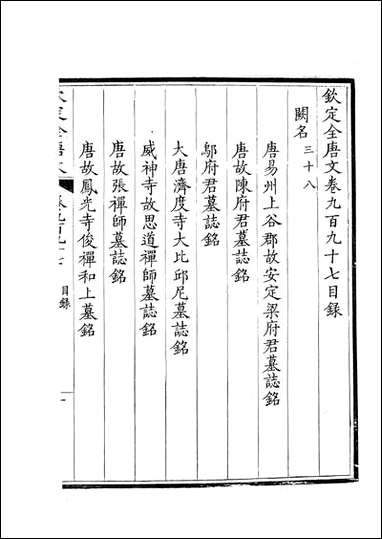 欽定全唐文卷九百九十七目錄
闕名三十八
唐易州上谷郡故安定梁府君墓誌銘
唐故陳府君墓誌銘
鄔府君墓誌銘
大唐濟度寺大比邱尼墓誌銘
威神寺故思道禪師墓誌銘
唐故張禪師墓誌銘
唐故鳳光寺俊禪和上墓銘
目錄